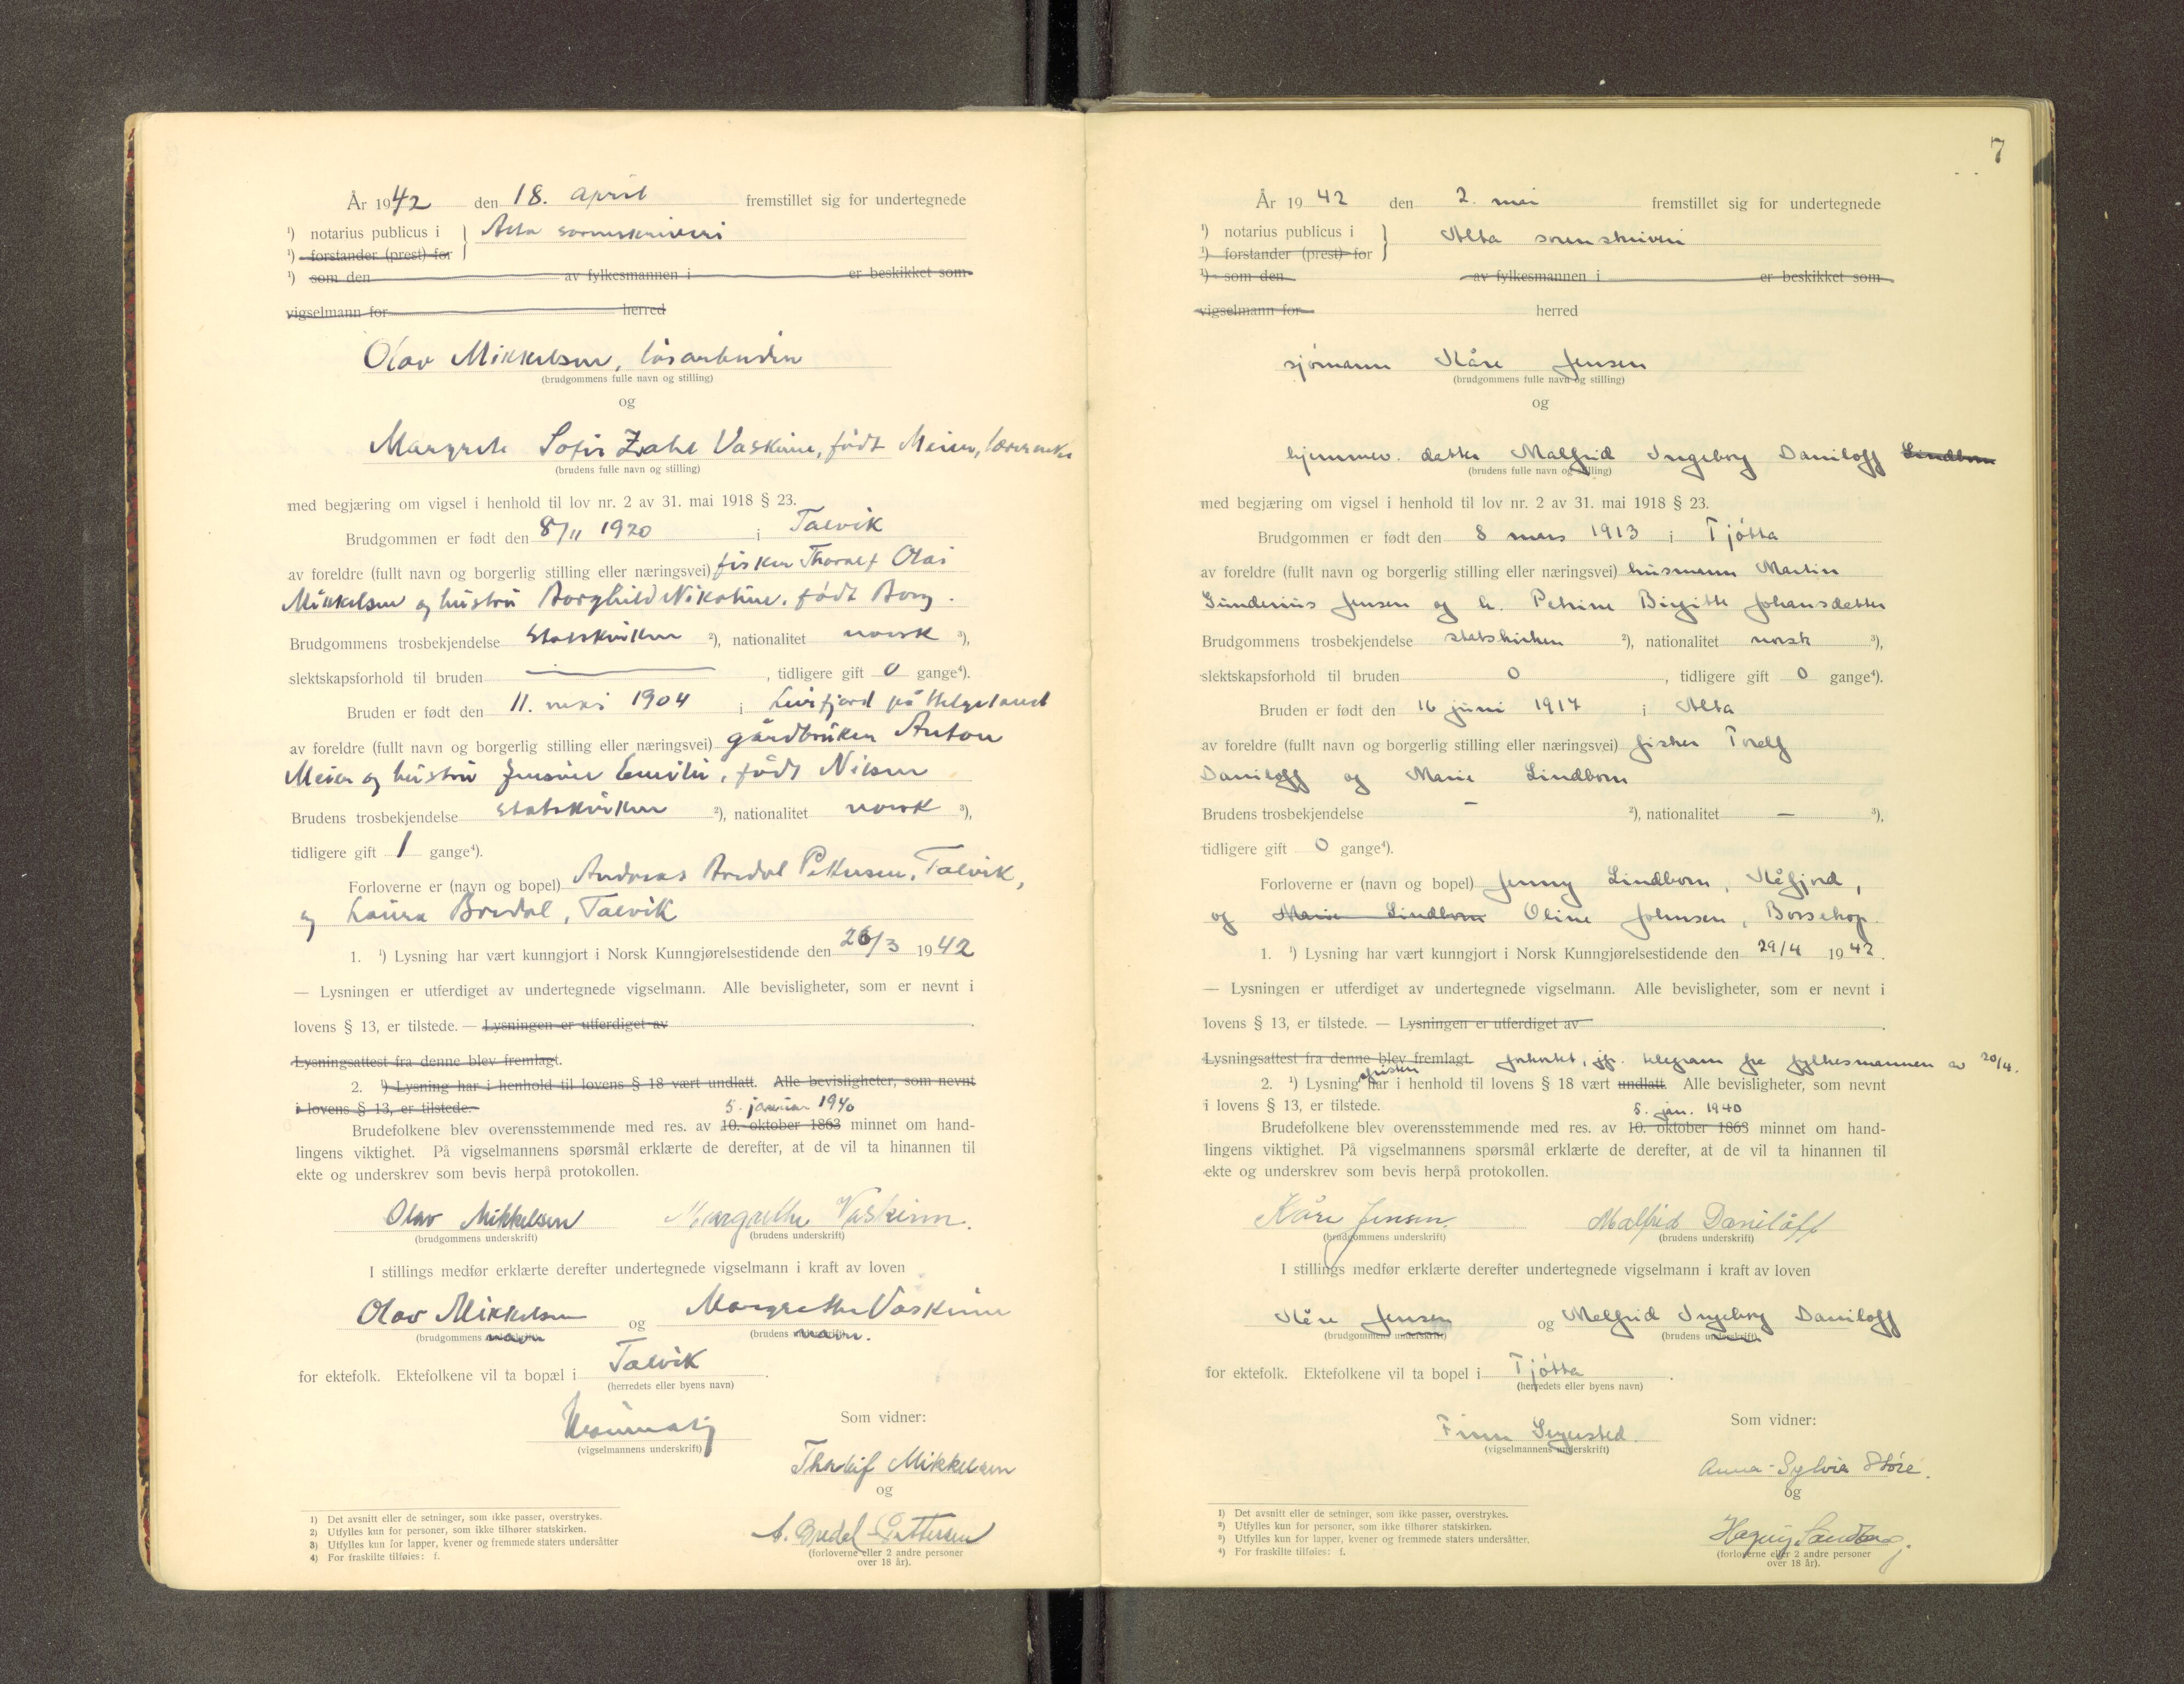 År 1942 den 18. april fremstillet sig for undertegnede
¹) notarius publicus i } Alta sorenskriveri
¹) forstander (prest) for
¹) som den av fylkesmannen i er beskikket som
vigselmann for herred
Olav Mikkelsen, løsarbeider
(brudgommens fulle navn og stilling)
og
Margrete Sofie Zahl Vaskinn, født Meier,
(brudens fulle navn og stilling)
med begjæring om vigsel i henhold til lov nr. 2 av 31. mai 1918 § 23.
Brudgommen er født den 8/11 1920 i Talvik
av foreldre (fullt navn og borgerlig stilling eller næringsvei) fisker Thoralf Olai
Mikkelsen og hustru Borghild Nikoline, født Borg.
Brudgommens trosbekjendelse statskirken ²), nationalitet norsk ³),
slektskapsforhold til bruden — , tidligere gift 0 gange⁴).
Bruden er født den 11. mai 1904 i Leirfjord på Helgeland
av foreldre (fullt navn og borgerlig stilling eller næringsvei) gårdbruker Anton
Meier og hustru Jensine Emilie, født Nilsen
Brudens trosbekjendelse statskirken ²), nationalitet norsk ³),
tidligere gift 1 gange⁴).
Forloverne er (navn og bopel) Andreas Bredal Pettersen, Talvik,
og Laura Bredal, Talvik
1. ¹) Lysning har vært kunngjort i Norsk Kunngjørelsestidende den 26/3 1942
— Lysningen er utferdiget av undertegnede vigselmann. Alle bevisligheter, som er nevnt i
lovens § 13, er tilstede. — Lysningen er utferdiget av .
Lysningsattest fra denne blev fremlagt.
2. ¹) Lysning har i henhold til lovens § 18 vært undlatt. Alle bevisligheter, som nevnt
i lovens § 13, er tilstede. 5. januar 1940
Brudefolkene blev overensstemmende med res. av 10. oktober 1863 minnet om hand-
lingens viktighet. På vigselmannens spørsmål erklærte de derefter, at de vil ta hinannen til
ekte og underskrev som bevis herpå protokollen.
Olav Mikkelsen Margrethe Vaskinn.
(brudgommens underskrift) (brudens underskrift)
I stillings medfør erklærte derefter undertegnede vigselmann i kraft av loven
Olav Mikkelsen og Margrethe Vaskinn
(brudgommens underskrift) navn (brudens underskrift) navn.
for ektefolk. Ektefolkene vil ta bopæl i Talvik .
(herredets eller byens navn)
Som vidner:
(vigselmannens underskrift)
Thorleif Mikkelsen
og
A. Bredal-Pettersen
(forloverne eller 2 andre personer
over 18 år).
1) Det avsnitt eller de setninger, som ikke passer, overstrykes.
2) Utfylles kun for personer, som ikke tilhører statskirken.
3) Utfylles kun for lapper, kvener og fremmede staters undersåtter
4) For fraskilte tilføies: f.
7
År 1942 den 2. mai fremstillet sig for undertegnede
¹) notarius publicus i } Alta sorenskriveri
¹) forstander (prest) for
¹) som den av fylkesmannen i er beskikket som
vigselmann for herred
sjømann Kåre Jensen
(brudgommens fulle navn og stilling)
og
hjemmev. datter Malfrid Ingeborg Daniloff Lindbom
(brudens fulle navn og stilling)
med begjæring om vigsel i henhold til lov nr. 2 av 31. mai 1918 § 23.
Brudgommen er født den 8 mars 1913 i Tjøtta
av foreldre (fullt navn og borgerlig stilling eller næringsvei) husmann Martin
Gunderius Jensen og h. Petrine Birgitte Johansdatter
Brudgommens trosbekjendelse statskirken ²), nationalitet norsk ³),
slektskapsforhold til bruden 0 , tidligere gift 0 gange⁴).
Bruden er født den 16 juni 1917 i Alta
av foreldre (fullt navn og borgerlig stilling eller næringsvei) fisker Torelf
Daniloff og Marie Lindbom
Brudens trosbekjendelse - ²), nationalitet — ³),
tidligere gift 0 gange⁴).
Forloverne er (navn og bopel) Jenny Lindbom, Kåfjord,
og Marie Lindbom Oline Johnsen, Bossekop.
1. ¹) Lysning har vært kunngjort i Norsk Kunngjørelsestidende den 29/4 1942.
— Lysningen er utferdiget av undertegnede vigselmann. Alle bevisligheter, som er nevnt i
lovens § 13, er tilstede. — Lysningen er utferdiget av .
Lysningsattest fra denne blev fremlagt. forkortet, jfr. telegram fra fylkesmannen av 20/4.
2. ¹) Lysning fristen har i henhold til lovens § 18 vært undlatt. Alle bevisligheter, som nevnt
i lovens § 13, er tilstede. 5. jan. 1940
Brudefolkene blev overensstemmende med res. av 10. oktober 1863 minnet om hand-
lingens viktighet. På vigselmannens spørsmål erklærte de derefter, at de vil ta hinannen til
ekte og underskrev som bevis herpå protokollen.
Kåre Jensen. Malfrid Daniloff
(brudgommens underskrift) (brudens underskrift)
I stillings medfør erklærte derefter undertegnede vigselmann i kraft av loven
Kåre Jensen og Malfrid Ingeborg Daniloff
(brudgommens underskrift) (brudens underskrift)
for ektefolk. Ektefolkene vil ta bopel i Tjøtta .
(herredets eller byens navn)
Som vidner:
Finn Segelsted
(vigselmannens underskrift)
Anna-Sylvia Støre.
og
Sandberg.
(forloverne eller 2 andre personer
over 18 år).
1) Det avsnitt eller de setninger, som ikke passer, overstrykes.
2) Utfylles kun for personer, som ikke tilhører statskirken.
3) Utfylles kun for lapper, kvener og fremmede staters undersåtter.
4) For fraskilte tilføies: f.